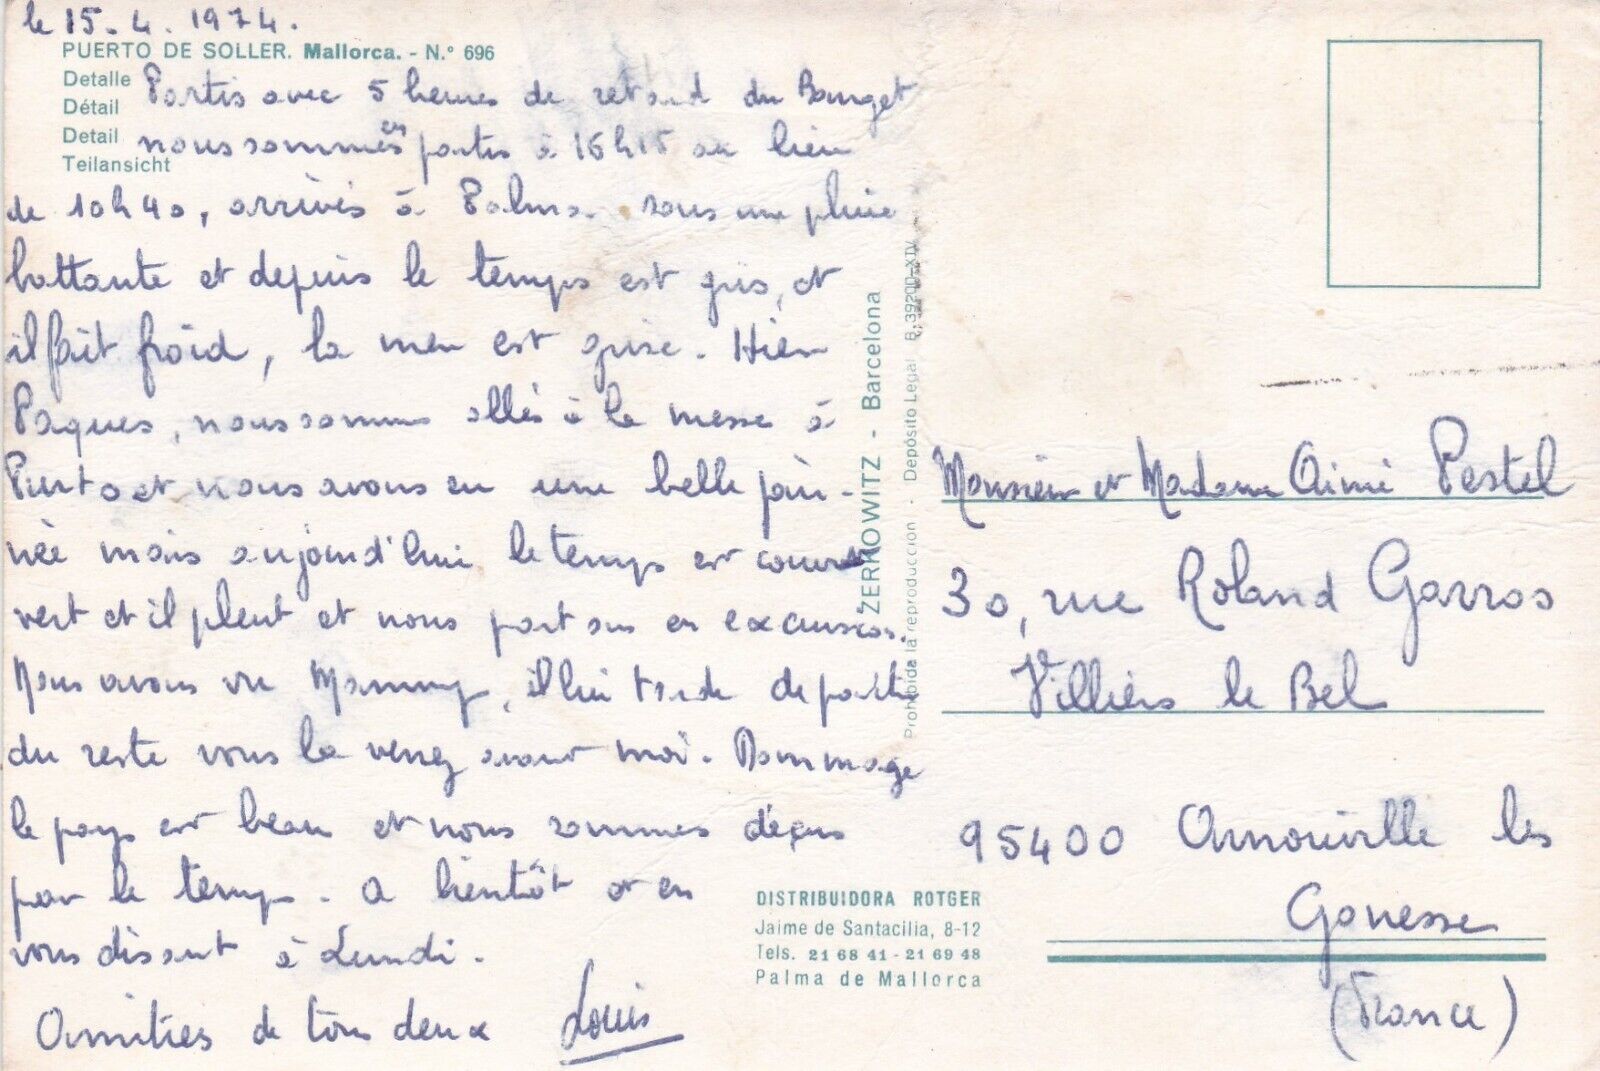 le 15-4.1974.
PUERTO DE SOLLER. Mallorca. - N.º 696
Detalle
Détail
Detail
Teilansicht
Partis avec 5 heures de retard du Bourget
nous sommes en partis à 16h15 au lieu
de 10h40, arrivés à Palma. sous une pluie
battante et depuis le temps est gris, et
il fait froid, la mer est grise. Hier
Pâques, nous sommes allés à la messe à
Puerto et nous avons eu une belle jour-
née mais aujourd'hui le temps est cou
vert et il pleut et nous partons en excursion.
Nous avons vu Mammy, il lui tarde de partir
du reste vous la verrez avant moi. Dommage
le pays est beau et nous sommes déçus
par le temps. A bientôt et en
vous disant à Lundi.
Amitiés de tous deux Louis
ZERKOWITZ - Barcelona
Prohibida la reproduccion - Depósito Legal B. 39200-XIV
Monsieur et Madame Aimé Pestel
30, rue Roland Garros
Villiers le Bel
95400 Arnouville les
Gonesse
(France)
DISTRIBUIDORA ROTGER
Jaime de Santacilia, 8-12
Tels. 21 68 41 - 21 69 48
Palma de Mallorca